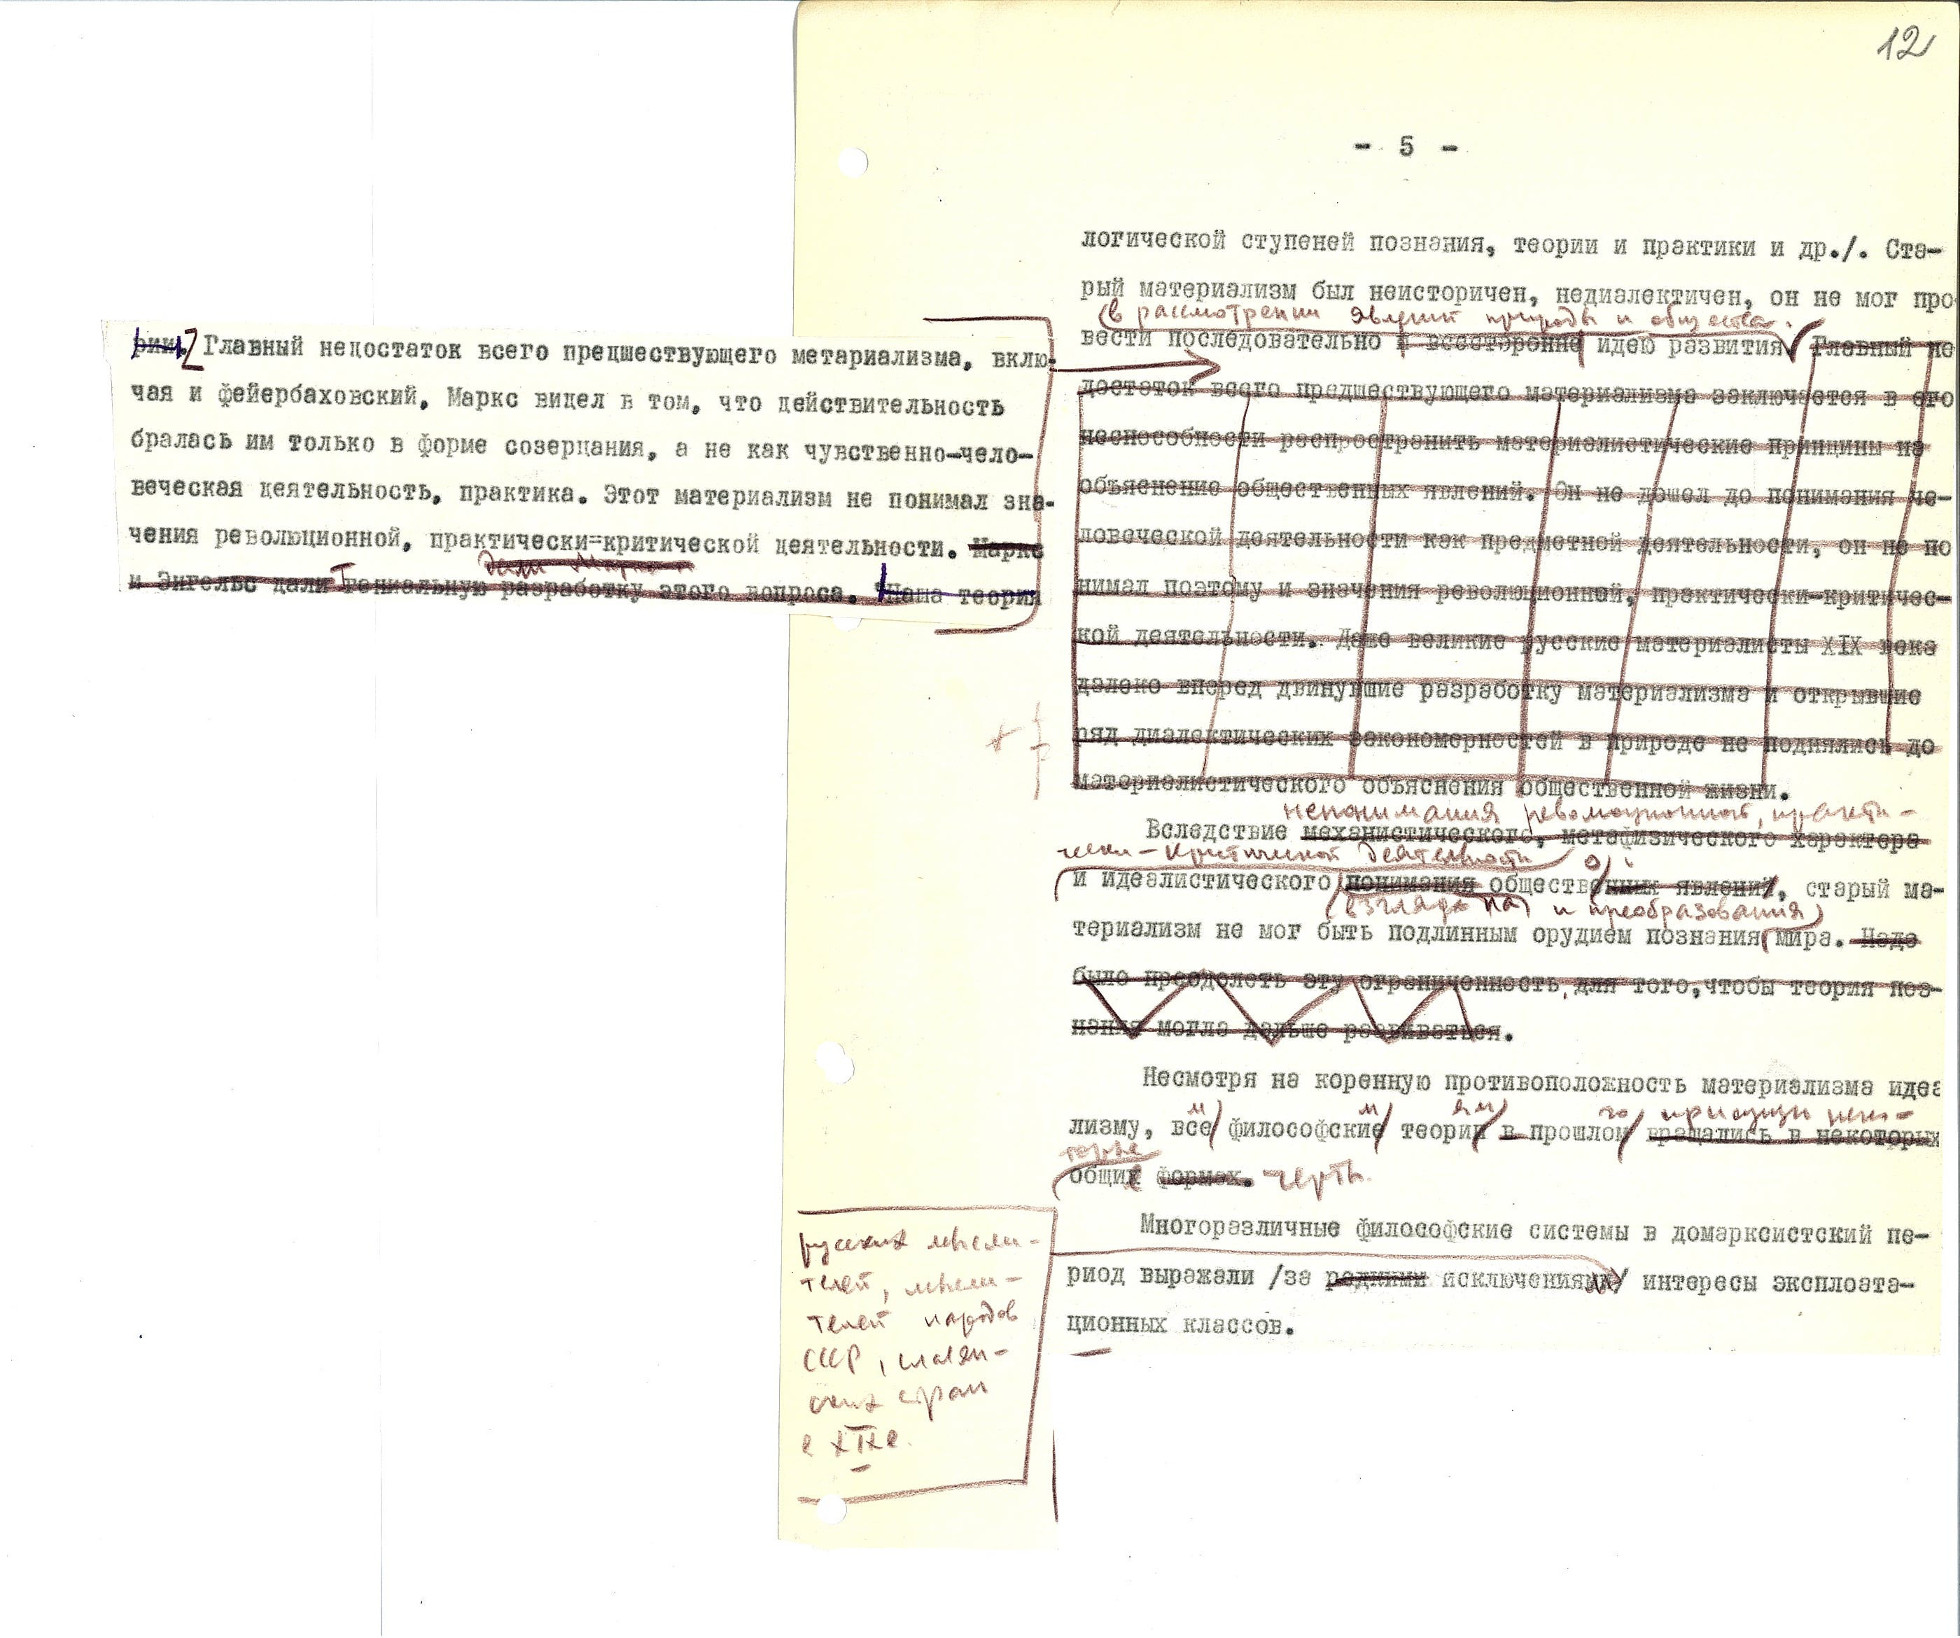 12
- 5 -
логической ступеней познания, теории и практики и др./. Ста-
рый материализм был неисторичен, недиалектичен, он не мог про
(в рассмотрении явлений природы и общества.
вести последовательно и всесторонне идею развития. Главный не
достаток всего предшествующего материализма заключается в его
неспособности распространить материалистические принципы на
объяснение общественных явлений. Он не дошел до понимания че-
ловеческой деятельности как предметной деятельности, он не по
нимал поэтому и значения революционной, практически-критичес-
кой деятельности. Даже великие русские материалисты XIX века
далеко вперед двинувшие разработку материализма и открывшие
ряд диалектических закономерностей в природе не поднялись до
материалистического объяснения общественной жизни.
непонимания революционной, практи-
Вследствие механистического, метафизического характера
чески-критической деятельности
и идеалистического понимания общественных явлений, старый ма-
(взгляда на) и преобразования)
териализм не мог быть подлинным орудием познания мира. Надо
было преодолеть эту ограниченность, для того, чтобы теория поз-
нания могла дальше развиваться.
Несмотря на коренную противоположность материализма идеа
м м ям го присущи неко-
лизму, все философские теории в прошлом вращались в некоторых
торые
общих формах. черты.
Многоразличные философские системы в домарксистский пе-
риод выражали /за редкими исключениями/ интересы эксплоата-
ционных классов.
рии. Z Главный недостаток всего предшествующего метариализма, вклю-
чая и фейербаховский, Маркс видел в том, что действительность
бралась им только в форме созерцания, а не как чувственно-чело-
веческая деятельность, практика. Этот материализм не понимал зна-
чения революционной, практически=критической деятельности. Маркс
и Энгельс дали Гениальную разработку этого вопроса. Наша теория
русских мысли-
телей, мысли-
телей народов
СССР, славян-
ских стран
в XIX в.